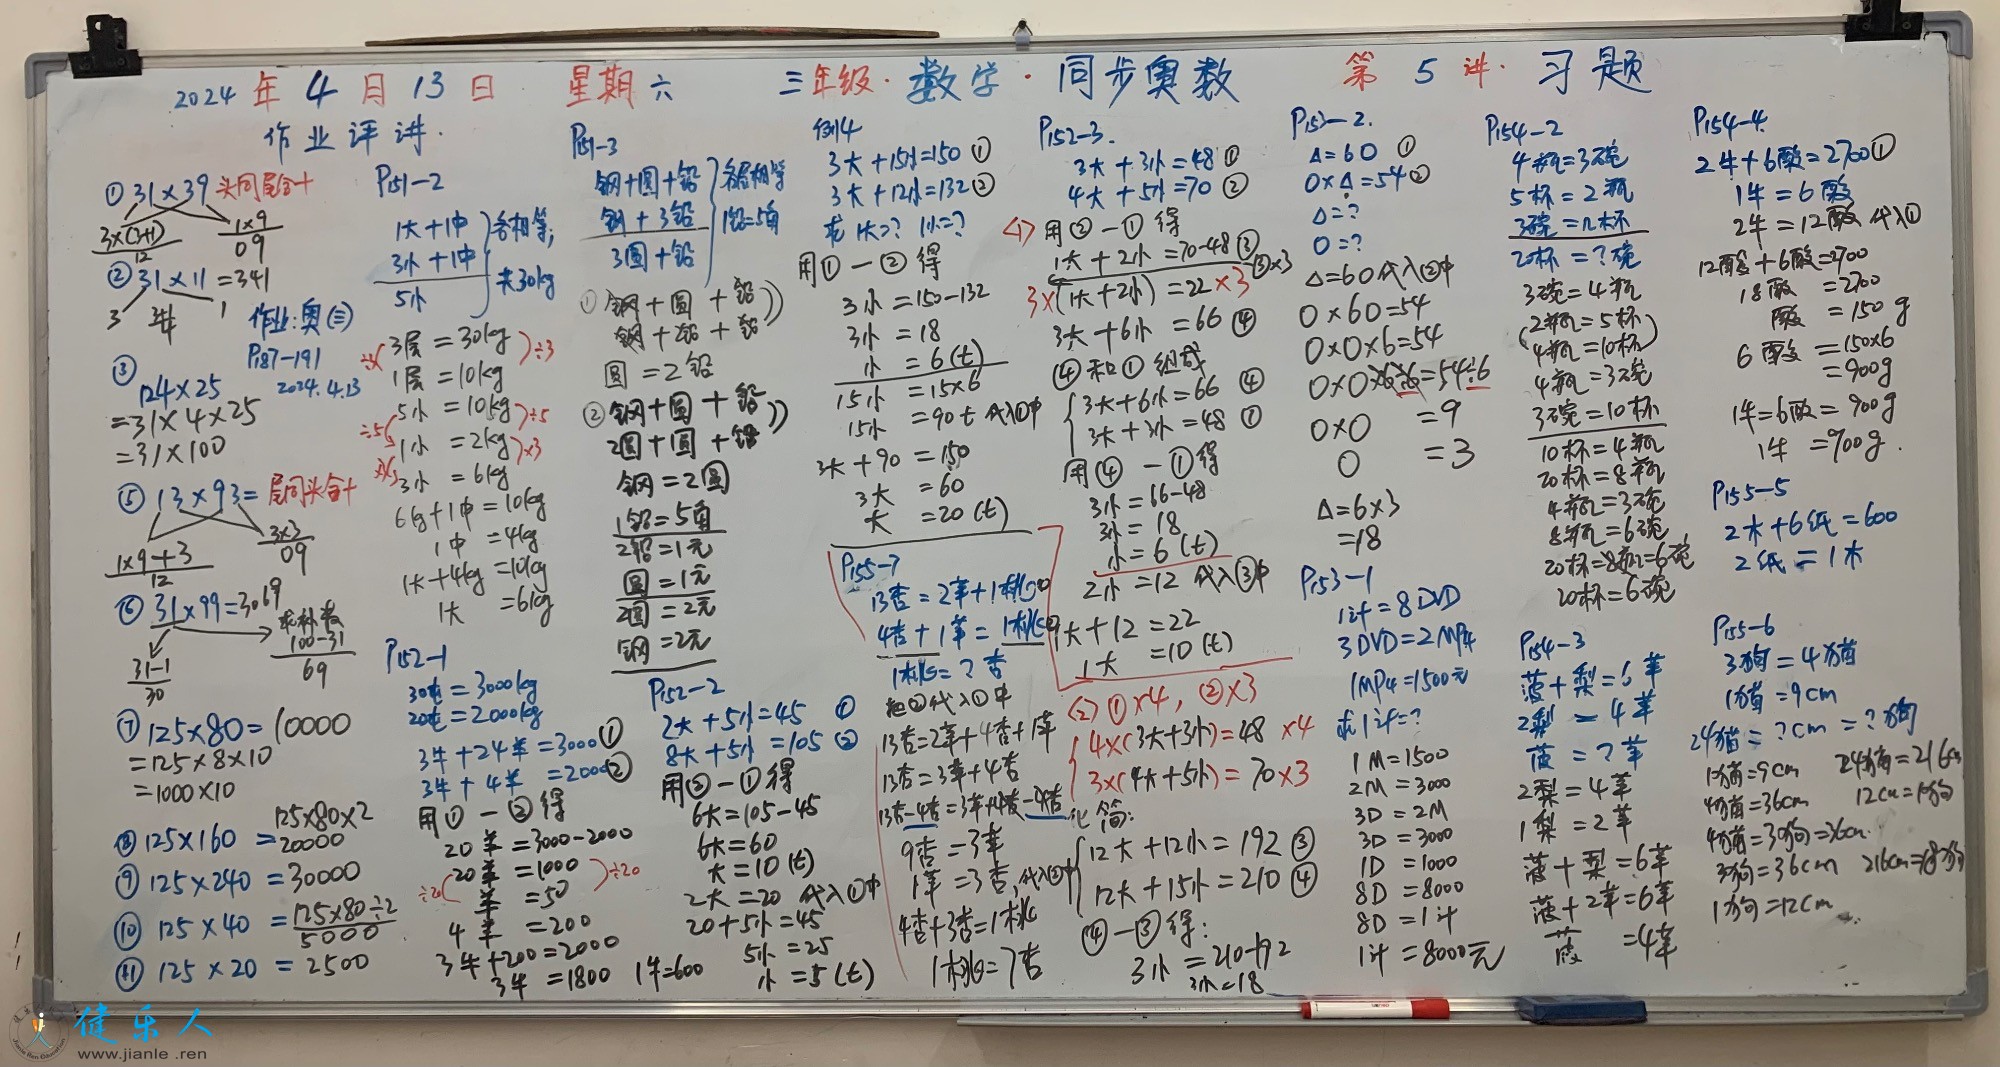 2024 年 4 月 13 日 星期六 三年级·数学·同步奥数 第 5 讲·习题
作业评讲.
① 31×39 头同尾合十
3×(3+1) 1×9
12 09
② 31×11=341
3 1
作业:奥(三)
P187-191
2024.4.13
③
124×25
=31×4×25
=31×100
⑤ 13×93= 尾同头合十
1×9+3 3×3
12 09
⑥ 31×99=3069
求补数
31-1 100-31
30 69
⑦ 125×80=10000
=125×8×10
=1000×10
125×80×2
⑧ 125×160 =20000
⑨ 125×240 =30000
⑩ 125×40 =125×80÷2
5000
⑪ 125×20 = 2500
P151-2
1大+1中
3小+1中
5小
各相等,
共30kg
÷3 3层=30kg ÷3
1层=10kg
÷5 5小=10kg ÷5
1小=2kg ×3
×3 3小=6kg
6kg+1中=10kg
1中=4kg
1大+4kg=10kg
1大=6kg
P152-1
30吨=3000kg
20吨=2000kg
3牛+24羊=3000①
3牛+4羊=2000②
用①-②得
20羊=3000-2000
÷20 20羊=1000 ÷20
羊=50
4羊=200
3牛+200=2000
3牛=1800 1牛=600
P151-3
钢+圆+铅
钢+3铅
3圆+铅
各层相等
1铅=5角
① 钢+圆+铅
钢+铅+铅
圆=2铅
② 钢+圆+铅
2圆+圆+铅
钢=2圆
1铅=5角
2铅=1元
圆=1元
2圆=2元
1钢=2元
P152-2
2大+5小=45 ①
8大+5小=105 ②
用②-①得
6大=105-45
6大=60
大=10(t)
2大=20 代入①中
20+5小=45
5小=25
小=5(t)
例4
3大+15小=150①
3大+12小=132②
求1大=? 1小=?
用①-②得
3小=150-132
3小=18
小=6(t)
15小=15×6
15小=90t 代入①中
3大+90=150
3大=60
大=20(t)
P155-7
13杏=2苹+1桃①
4杏+1苹=1桃②
1桃=?杏
把②代入①中
13杏=2苹+4杏+1苹
13杏=3苹+4杏
13杏-4杏=3苹+4杏-4杏
9杏=3苹
1苹=3杏,代入②中
4杏+3杏=1桃
1桃=7杏
P152-3.
3大+3小=48①
4大+5小=70②
<1> 用②-①得
1大+2小=70-48③
③×3
3×(1大+2小)=22×3
3大+6小=66④
④和①组成
3大+6小=66 ④
3大+3小=48 ①
用④-①得
3小=66-48
3小=18
小=6(t)
2小=12 代入③中
1大+12=22
1大=10(t)
(2)①×4,②×3
4×(3大+3小)=48×4
3×(4大+5小)=70×3
化简:
12大+12小=192③
12大+15小=210④
④-③得:
3小=210-192
3小=18
P153-2.
△=60 ①
0×△=54②
△=?
0=?
△=60代入②中
0×60=54
0×0×6=54
0×0×6÷6=54÷6
0×0=9
0=3
△=6×3
=18
P153-1
1计=8DVD
3DVD=2MP4
1MP4=1500元
求1计=?
1M=1500
2M=3000
3D=2M
3D=3000
1D=1000
8D=8000
8D=1计
1计=8000元
P154-2
4瓶=3碗
5杯=2瓶
3碗=几杯
20杯=?碗
3碗=4瓶
(2瓶=5杯)
4瓶=10杯
4瓶=3碗
3碗=10杯
10杯=4瓶
20杯=8瓶
4瓶=3碗
8瓶=6碗
20杯=8瓶=6碗
20杯=6碗
P154-3
菠+梨=6苹
2梨=4苹
菠=?苹
2梨=4苹
1梨=2苹
菠+梨=6苹
菠+2苹=6苹
菠=4苹
P154-4
2牛+6酸=2700①
1牛=6酸
2牛=12酸 代入①
12酸+6酸=2700
18酸=2700
酸=150g
6酸=150×6
=900g
1牛=6酸=900g
1牛=900g.
P155-5
2木+6纸=600
2纸=1木
P155-6
3狗=4猫
1猫=9cm
24猫=?cm=?狗
1猫=9cm 24猫=216cm
4猫=36cm 12cm=1狗
4猫=3狗=36cm.
3狗=36cm 216cm=18狗
1狗=12cm
健乐人
www.jianle.ren